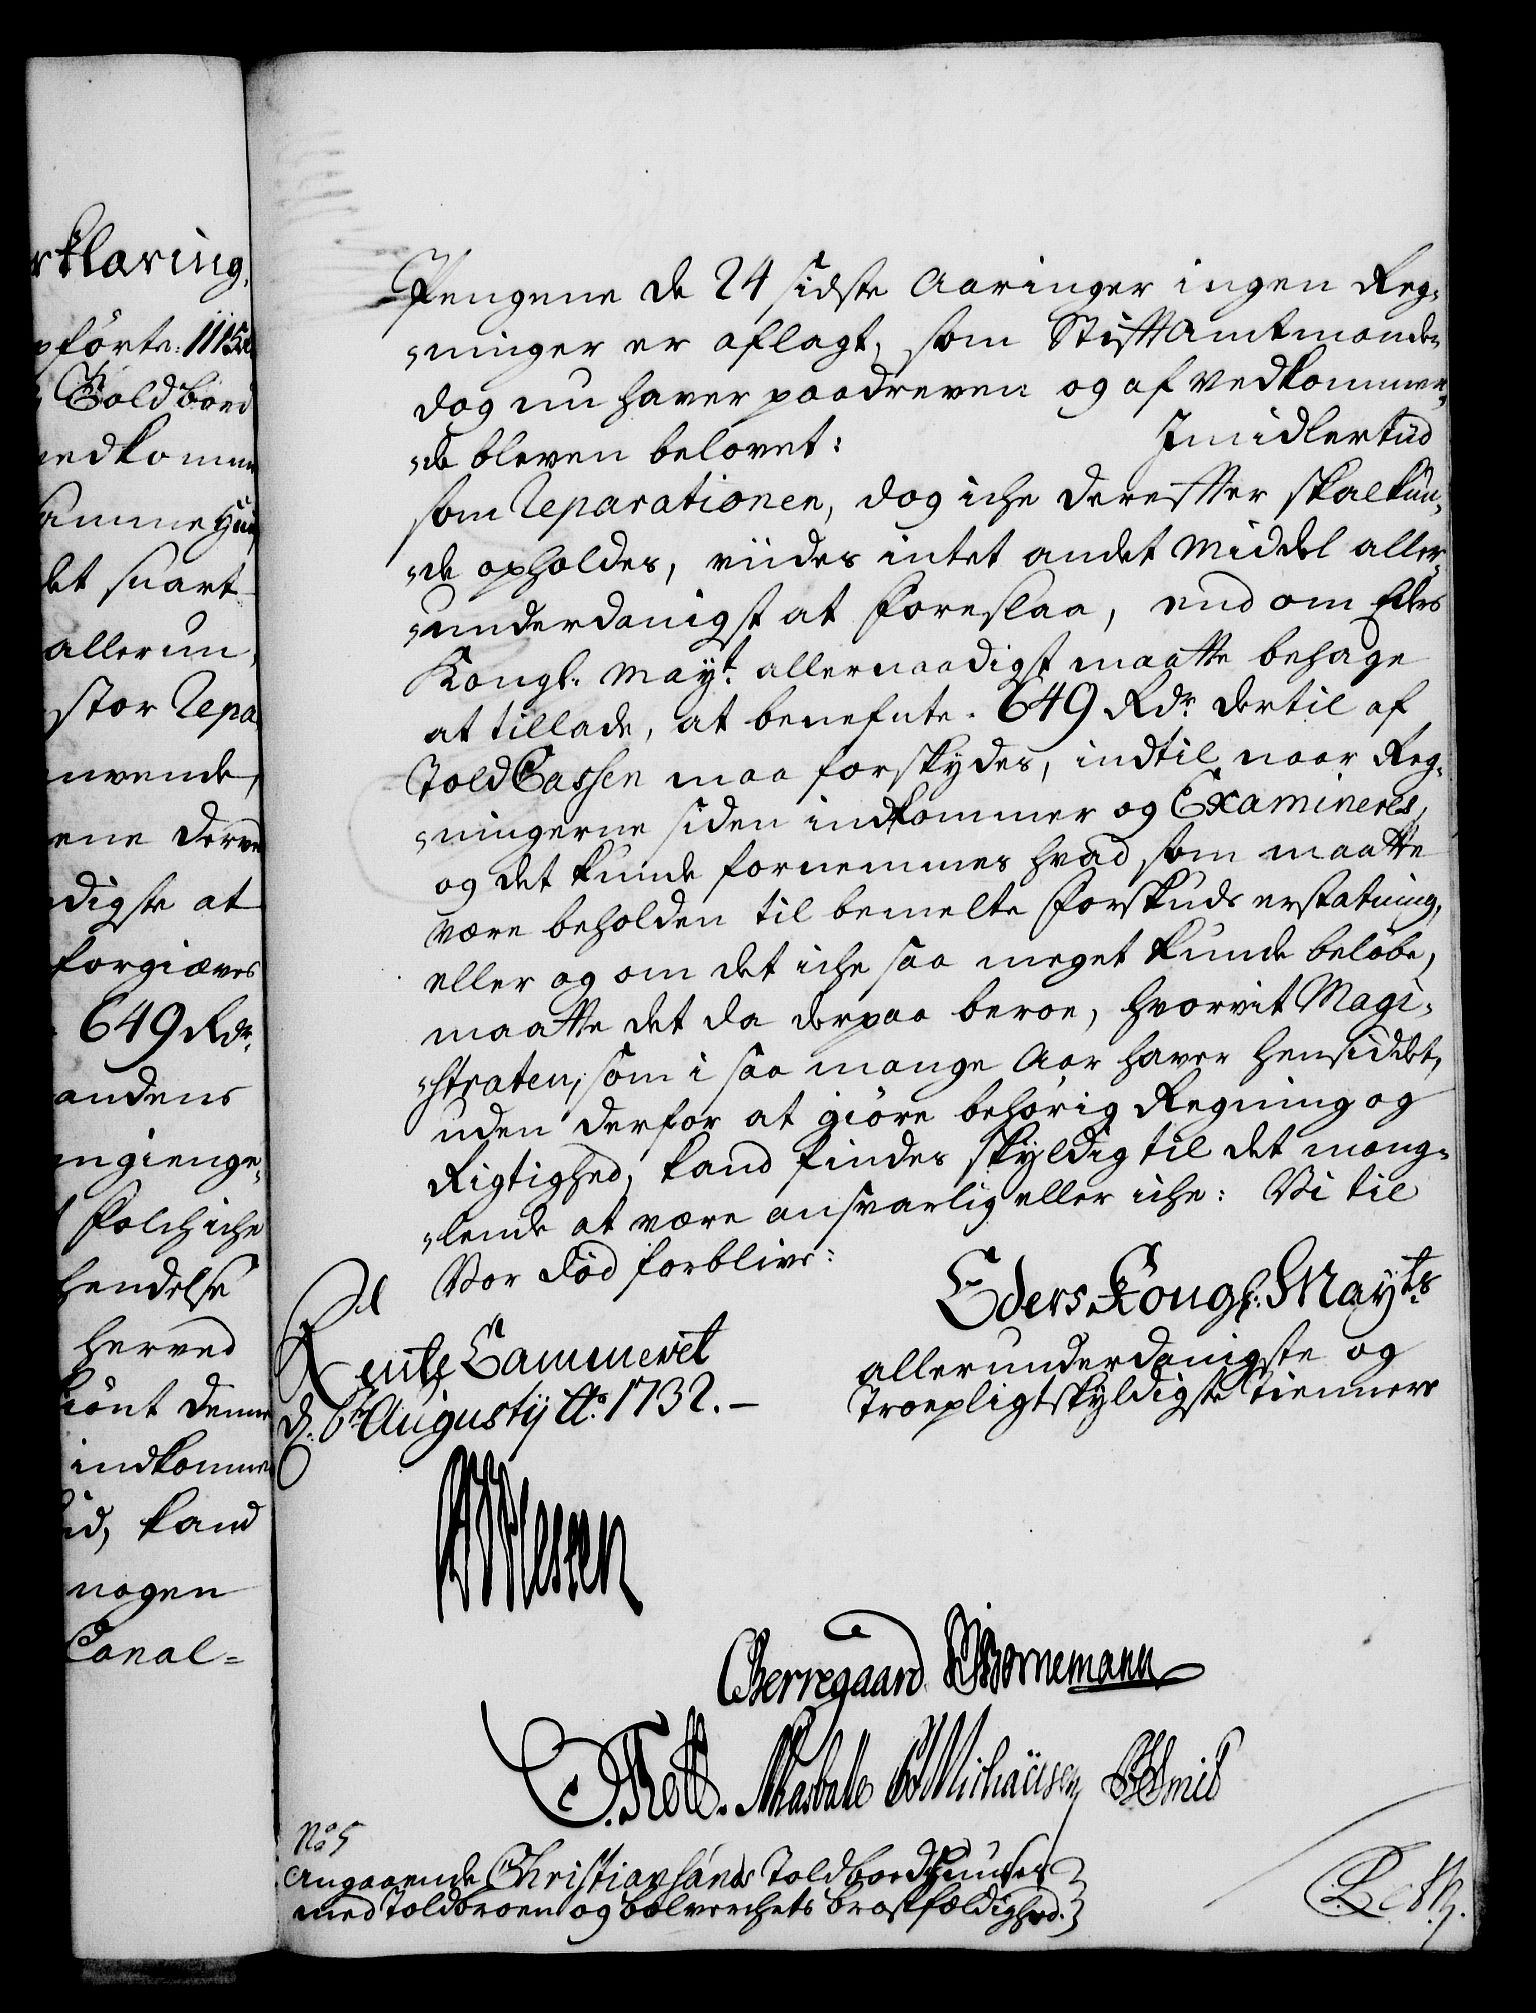 rklaring,
pförte: 1115
Toldboed
vedkomme
samme Huus
det svart
allerun
stor Repa
nvende,
ene derve
digste at
forgiæves
649 Rdr.
andens
ngienge
Folch iche
hendelse
herved
kiönt denne
indkomme
tid, kand
nogen
Canal=
Pengene de 24 sidste Aaringer ingen Reg=
=ninger er aflagt, som Stiftamtmanden
dog nu haver paadreven og af vedkommen=
=de bleven belovet: Imidlertiid
som Reparationen, dog iche derefter skal kun=
=de opholdes, viides intet andet Middel aller=
=underdanigst at foreslaa, end om Eders
Kongl. Mayt. allernaadigst maatte behage
at tillade, at benefnte 649 Rdr. dertil af
ToldCassen maa forskydes, indtil naar Reg=
=ningerne siden indkommer og Examineres,
og det kunde fornemmes hvad som maatte
være beholden til bemelte Forskuds erstatning,
eller og om det iche saa meget kunde belöbe,
maatte det da derpaa beroe, hvorvit Magi=
=straten, som i saa mange Aar haver hensiddet,
uden derfor at giöre behörig Regning og
Rigtighed, kand findes skyldig til det mang=
=lende at være ansvarlig eller iche: Vi til
Vor Död forblive:
Eders Kongl: Mayts
allerunderdanigste og
Troepligtskyldigste Tiennere
Rente Cammeret
d. 6te Augustij Ao. 1732. –
Plessen
Berregaard Bornemann
Nº 5
angaaende Christiansands Toldbodhuuser
med Toldbroen og bolverchets brøstfældighed.